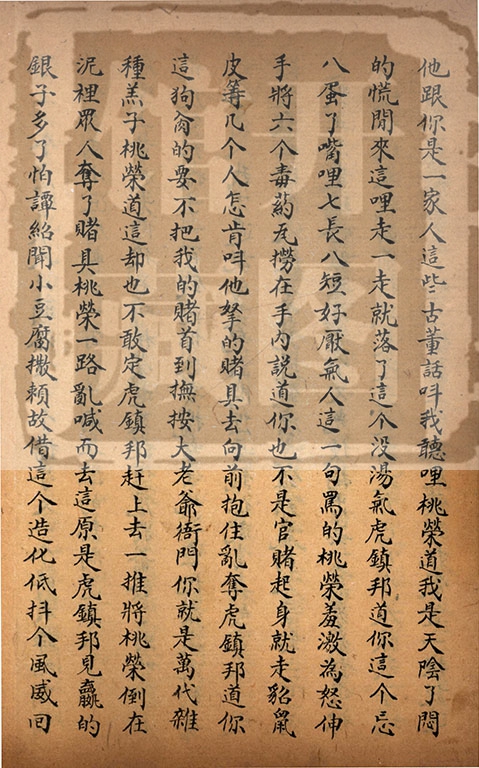 他跟你是一家人這些古董話呌我聽哩桃榮道我是天陰了悶
的慌閒來這哩走一走就落了這个没湯氣虎鎮邦道你這个忘
八蛋了嘴哩七長八短好厭氣人這一句罵的桃榮羞激為怒伸
手將六个毒药瓦撈在手内説道你也不是官賭起身就走貂鼠
皮等几个人怎肯呌他拏的賭具去向前抱住亂奪虎鎮邦道你
這狗肏的要不把我的賭首到撫按大老爺衙門你就是萬代雜
種羔子桃榮道這却也不敢定虎鎮邦赶上去一推將桃榮倒在
泥裡眾人奪了賭具桃榮一路亂喊而去這原是虎鎮邦見贏的
銀子多了怕譚紹聞小豆腐撒賴故借這个造化低抖个風威回